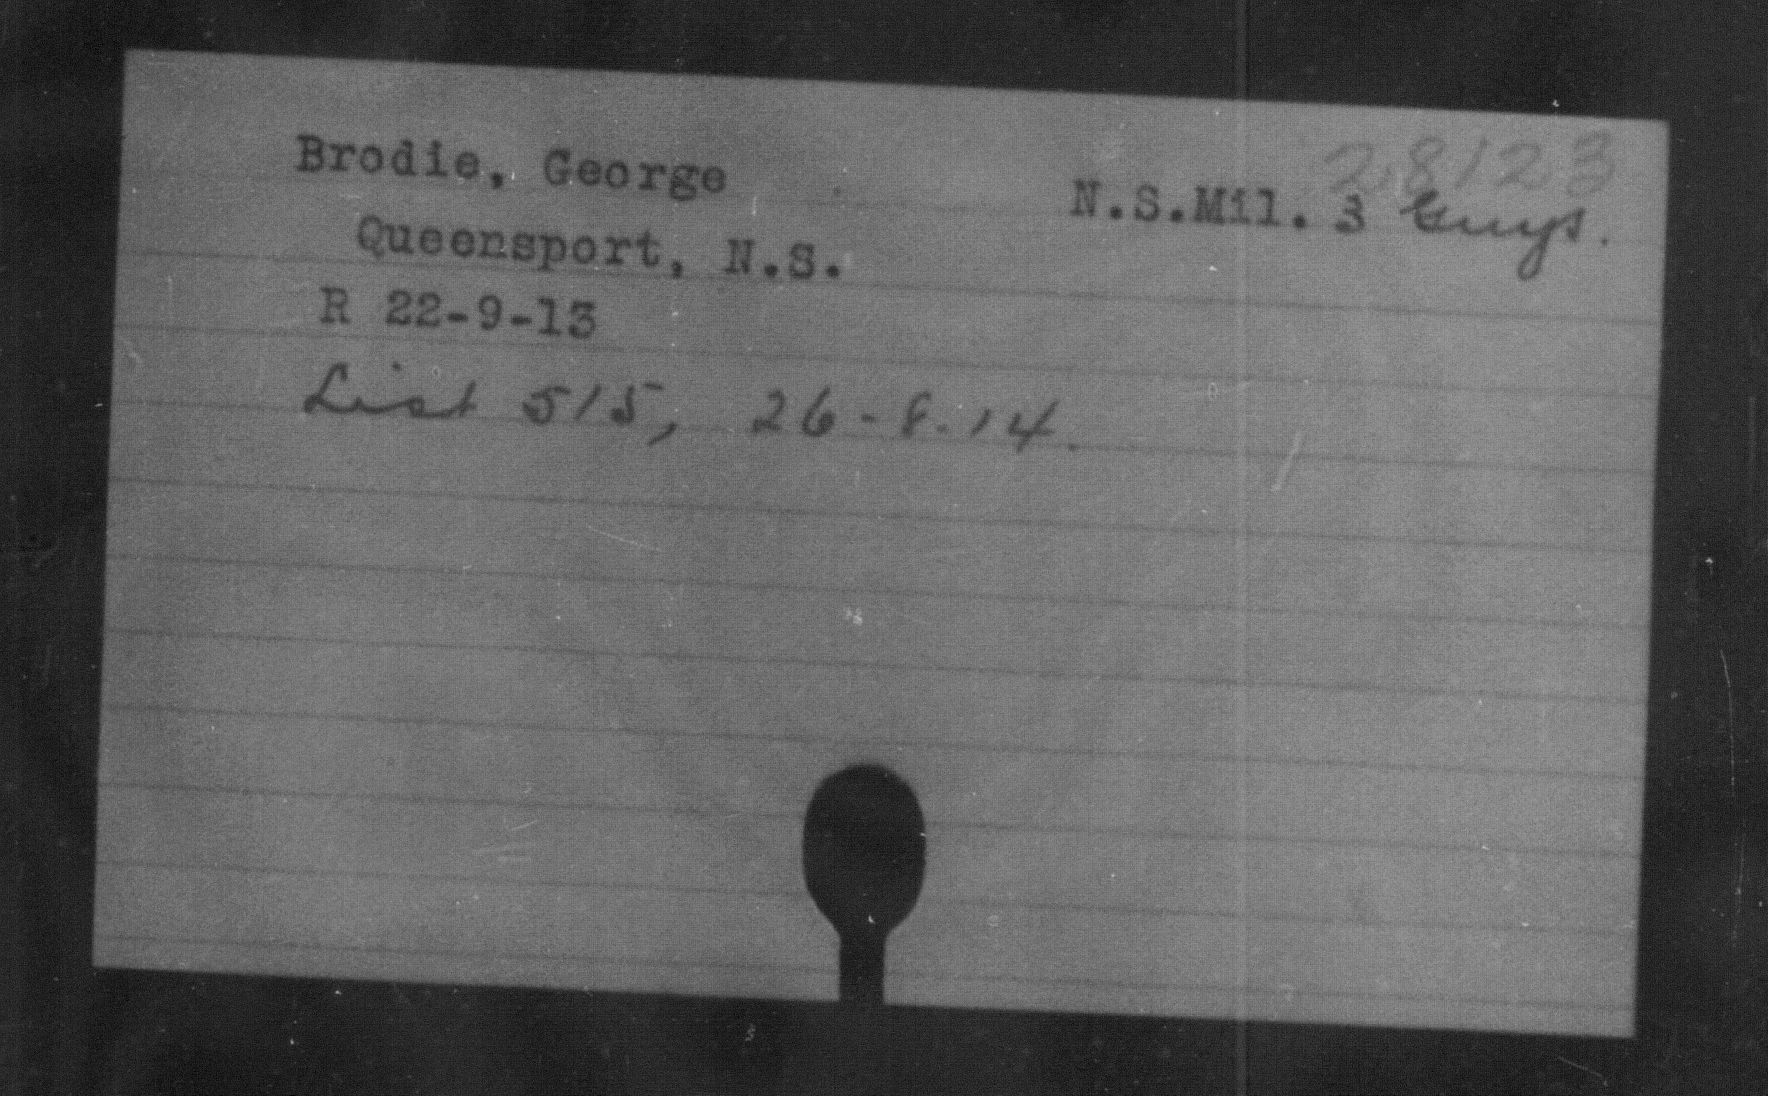 28123
Brodie, George N.S.Mil. 3 Guys.
Queensport, N.S.
R 22-9-13
List 515, 26-8-14.